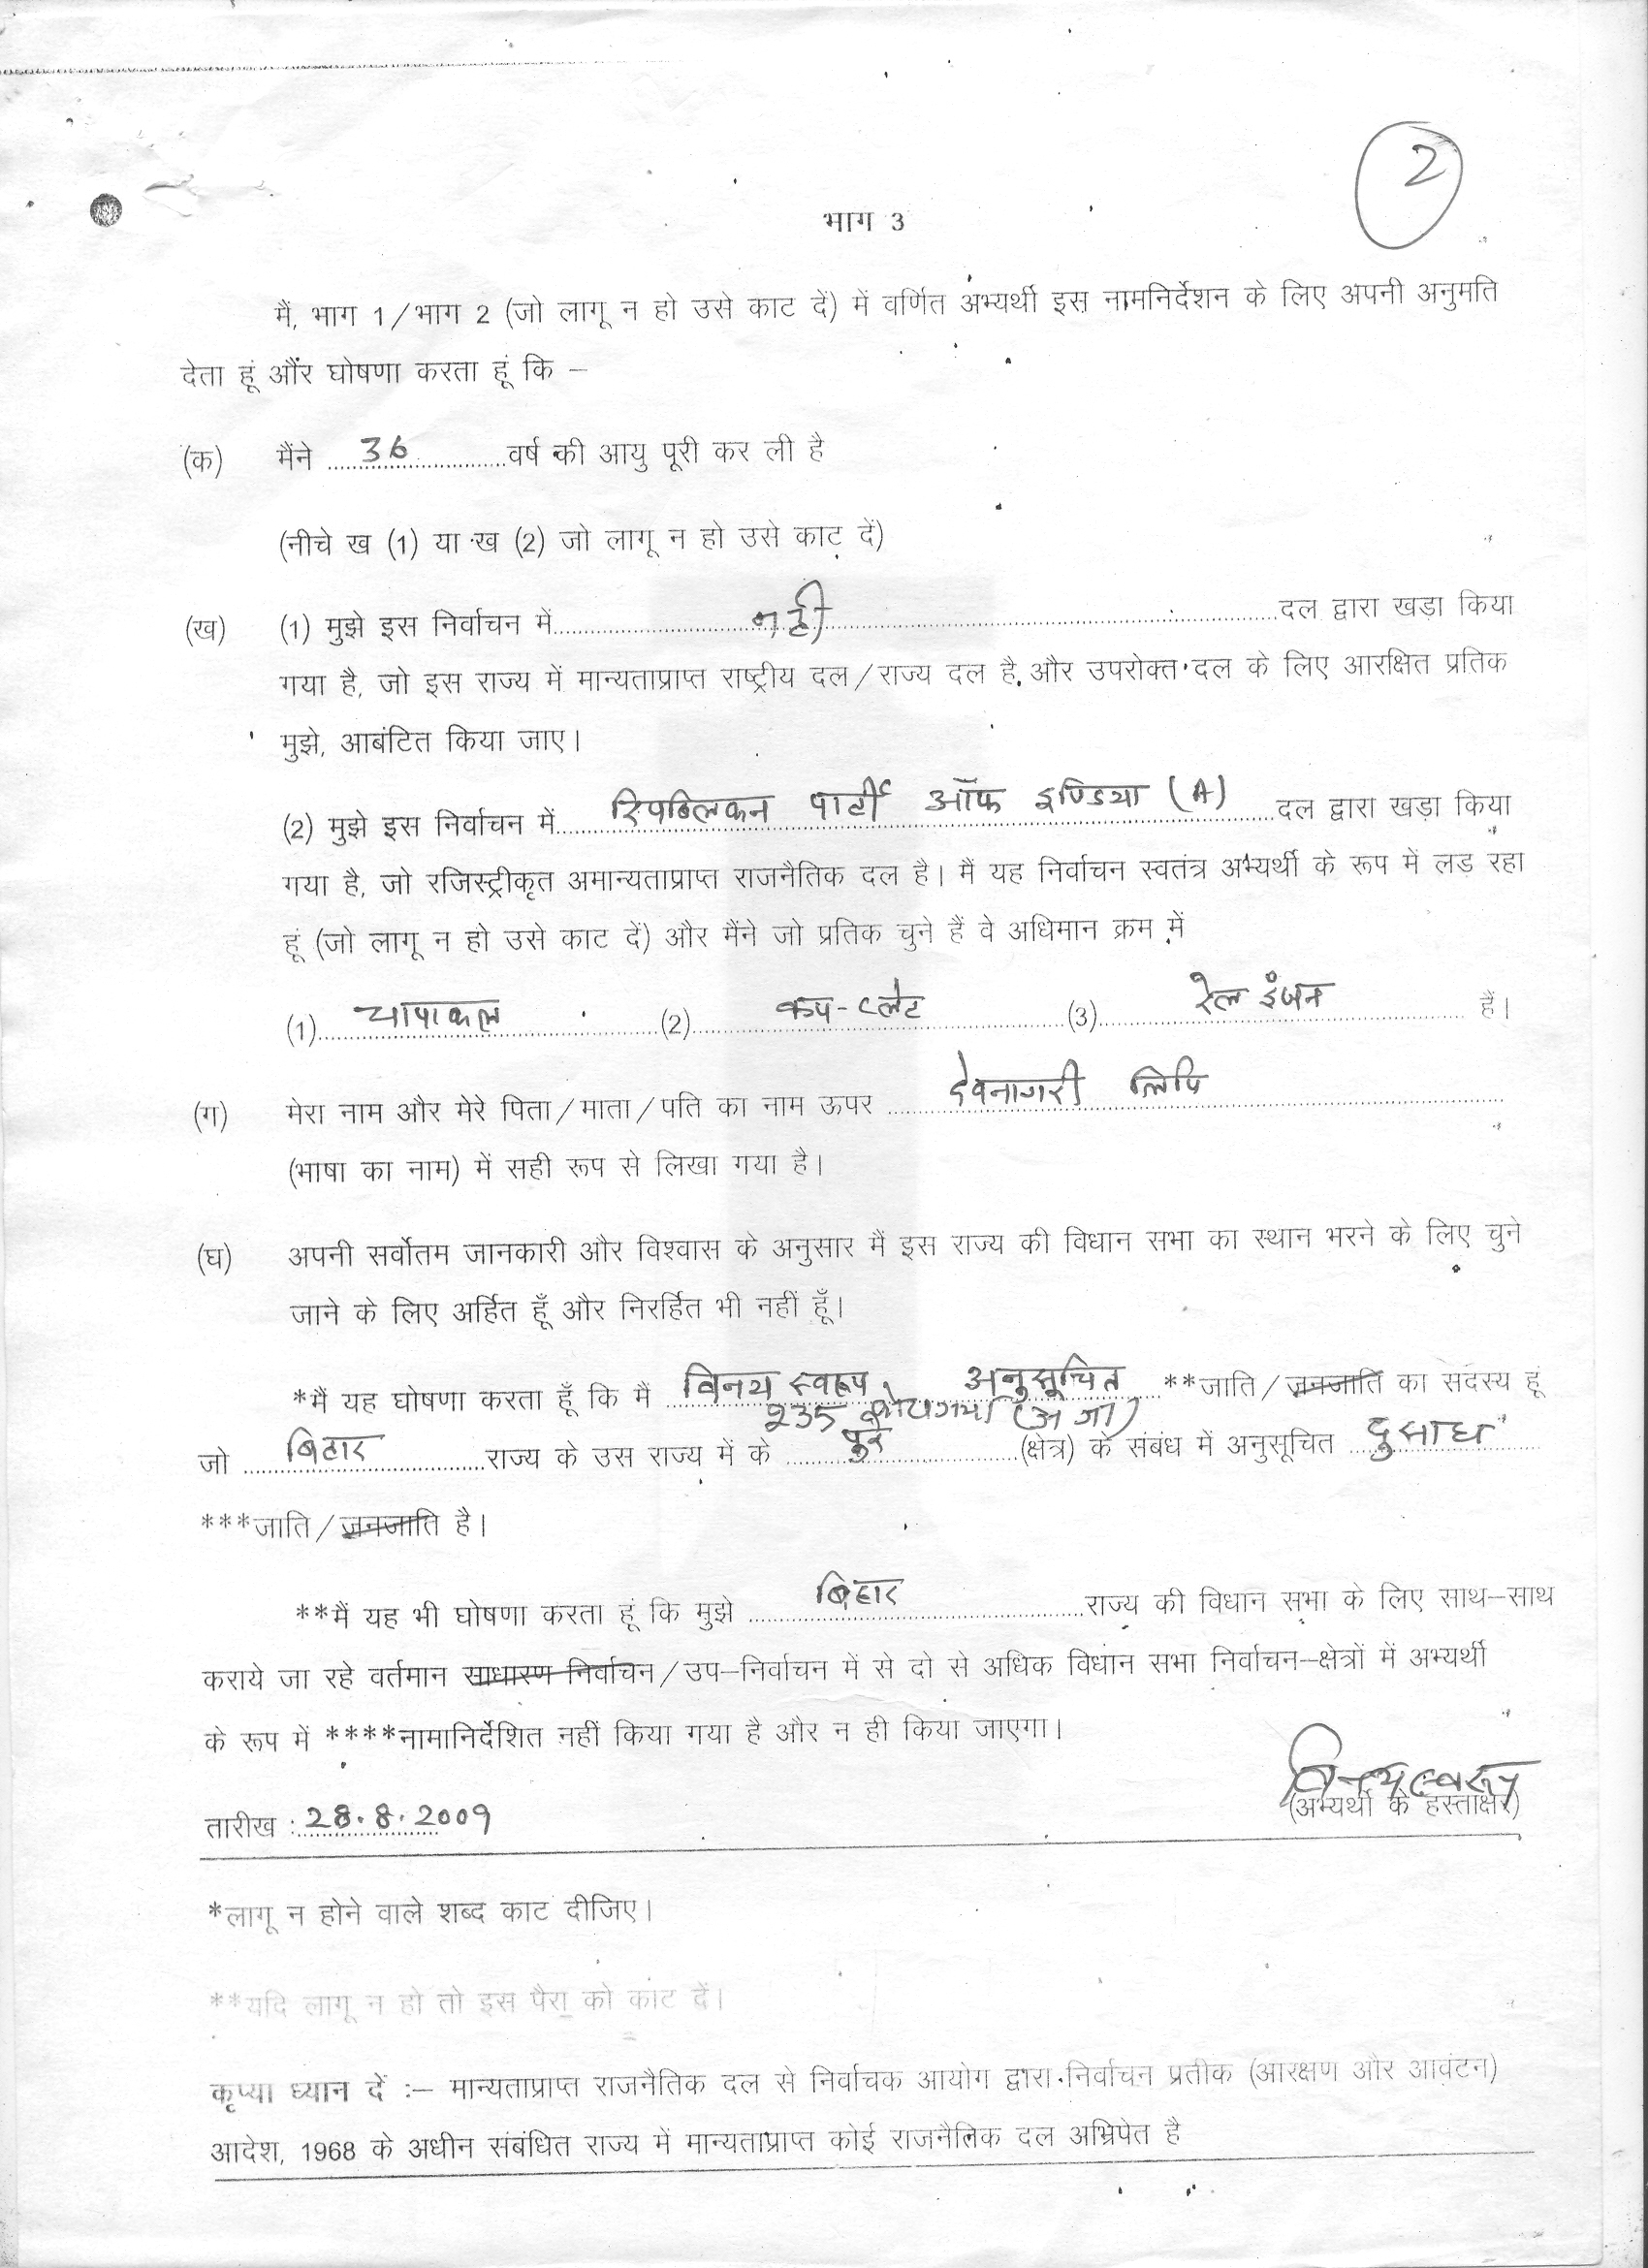 2
भाग 3
मैं, भाग 1/भाग 2 (जो लागू न हो उसे काट दें) में वर्णित अभ्यर्थी इस नामनिर्देशन के लिए अपनी अनुमति
देता हूं और घोषणा करता हूं कि –
(क) मैंने 36 वर्ष की आयु पूरी कर ली है
(नीचे ख (1) या ख (2) जो लागू न हो उसे काट दें)
(ख) (1) मुझे इस निर्वाचन में नहीं दल द्वारा खड़ा किया
गया है, जो इस राज्य में मान्यताप्राप्त राष्ट्रीय दल/राज्य दल है, और उपरोक्त दल के लिए आरक्षित प्रतिक
मुझे, आबंटित किया जाए।
(2) मुझे इस निर्वाचन में रिपब्लिकन पार्टी ऑफ इण्डिया (A) दल द्वारा खड़ा किया
गया है, जो रजिस्ट्रीकृत अमान्यताप्राप्त राजनैतिक दल है। मैं यह निर्वाचन स्वतंत्र अभ्यर्थी के रूप में लड़ रहा
हूं (जो लागू न हो उसे काट दें) और मैंने जो प्रतिक चुने हैं वे अधिमान क्रम में
(1) चापाकल (2) कप-प्लेट (3) रेल इंजन हैं।
(ग) मेरा नाम और मेरे पिता/माता/पति का नाम ऊपर देवनागरी लिपि
(भाषा का नाम) में सही रूप से लिखा गया है।
(घ) अपनी सर्वोतम जानकारी और विश्वास के अनुसार मैं इस राज्य की विधान सभा का स्थान भरने के लिए चुने
जाने के लिए अर्हित हूँ और निरर्हित भी नहीं हूँ।
*मैं यह घोषणा करता हूँ कि मैं विनय स्वरूप अनुसूचित **जाति/जनजाति का सदस्य हूं
235 बोधगया (अ जा)
जो बिहार राज्य के उस राज्य में के (क्षेत्र) के संबंध में अनुसूचित दुसाध
***जाति/जनजाति है।
**मैं यह भी घोषणा करता हूं कि मुझे बिहार राज्य की विधान सभा के लिए साथ–साथ
कराये जा रहे वर्तमान साधारण निर्वाचन/उप–निर्वाचन में से दो से अधिक विधान सभा निर्वाचन–क्षेत्रों में अभ्यर्थी
के रूप में ****नामानिर्देशित नहीं किया गया है और न ही किया जाएगा।
विनय स्वरूप
तारीख : 28.8.2009 (अभ्यर्थी के हस्ताक्षर)
*लागू न होने वाले शब्द काट दीजिए।
**यदि लागू न हो तो इस पैरा को काट दें।
कृप्या ध्यान दें :– मान्यताप्राप्त राजनैतिक दल से निर्वाचक आयोग द्वारा निर्वाचन प्रतीक (आरक्षण और आवंटन)
आदेश, 1968 के अधीन संबंधित राज्य में मान्यताप्राप्त कोई राजनैतिक दल अभिप्रेत है